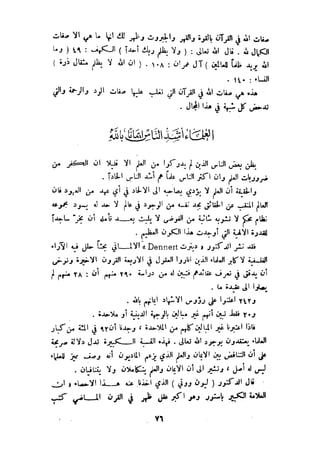 صفات الله في القرآن بالقوة والقهر والجبروت وظهر لك أنها ما هي الا صفات
الكمال لله . قال الله تعالى : ( ولا يظلم ربك أحدا ) الكهف : ٤٩ ( وما
الله يريد ظلما للعالمين ) آل عمران : ١٠٨ . ( ان الله لا يظلم مثقال ذرة )
النساء : ٤٠ .
هذه هي صفات الله في القرآن التي تغلب عليها صفات الود والرحمة والتي
تدحض كل شبهة في هذا المجال .
العلماء أشد الناس إيمانا بالله
يظن بعض الناس الذين لم يدركوا من العلم الا قليلا ان الكفر من
ضروريات العلم وان أكثر الناس علما هم أشد الناس الحادا .
والحقيقة أن العلم لا يؤدي بصاحبه الى الالحاد في أي عهد من عهوده فان
العالم المنقب عن الحقائق يجد نفسه من الوجود في عالم لا حد له يسوده مجموعه
نظام محكم لا تشوبه شائبة من الفوضى لا يلبث بعده أن تأمله أن يخر ساجدا
للقدرة الالهية التي أوجدت هذا الكون العظيم .
فقد نشر الدكتور دينرت Dennert الألماني بحثا حلل فيه الآراء
الفلسفية لأكابر العلماء الذين اناروا العقول في الأربعة القرون الاخيرة وتوخى
أن يدقق في تعرف عقائدهم فتبين له من دراسة ٢٩٠ منهم أن : ٢٨ منهم لم
يصلوا الى عقيدة ما .
و٢٤٢ اعلنوا على رؤوس الاشهاد ايمانهم بالله .
و٢٠ فقط تبين أنهم غير مبالين بالوجهة الدينية أو ملاحدة .
فاذا اعتبرنا غير المبالين كلهم من الملاحدة وجدنا أن ٩٢ في المئة من كبار
العلماء يعتقدون بوجود الله تعالى . فهذه النسبة الكبيرة تدل دلالة صريحة
على أن التناقض بين الايمان والعلم الذي يزعم الماديون أنه وصف مميز للعلماء
ليس له أصل ، وتشير الى أن الايمان والعلم متكاملان ولا يتناقضان .
قال الدكتور ( ويون ودني ) الذي أخذنا عنه هذا الاحصاء « ان
العلامة الكبير باستور وهو أكبر عقل ظهر في القرن الماضي كتب
٧٦